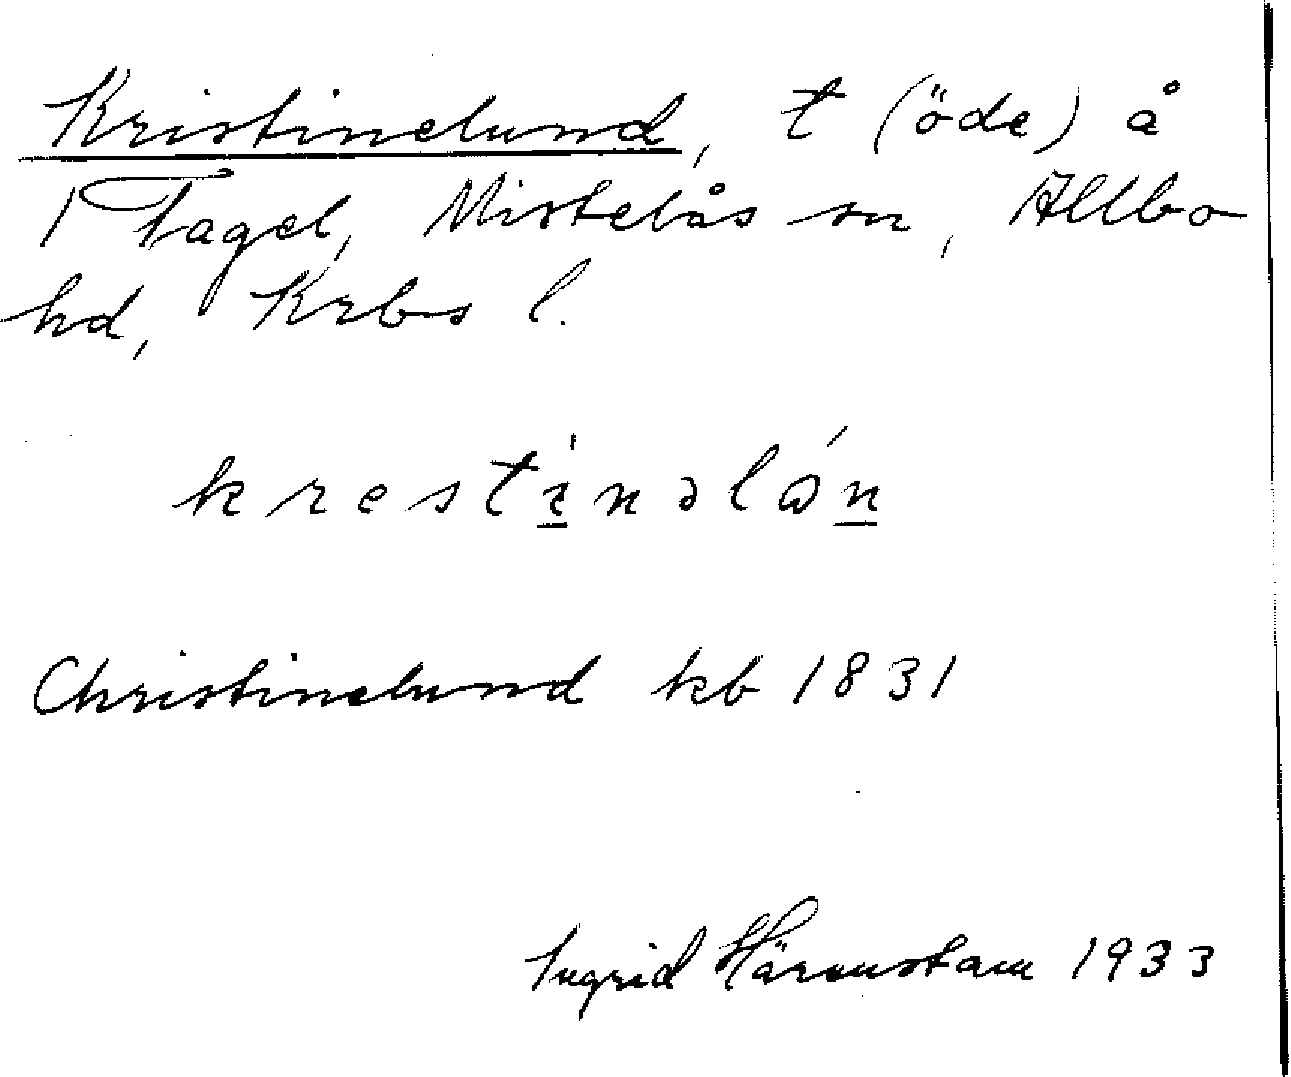 Kristinelund, t (öde) å
1 Tagel, Mistelås sn, Allbo
hd, Krbs l.
krestinəlón
Christinelund kb 1831
Ingrid Härenstam 1933